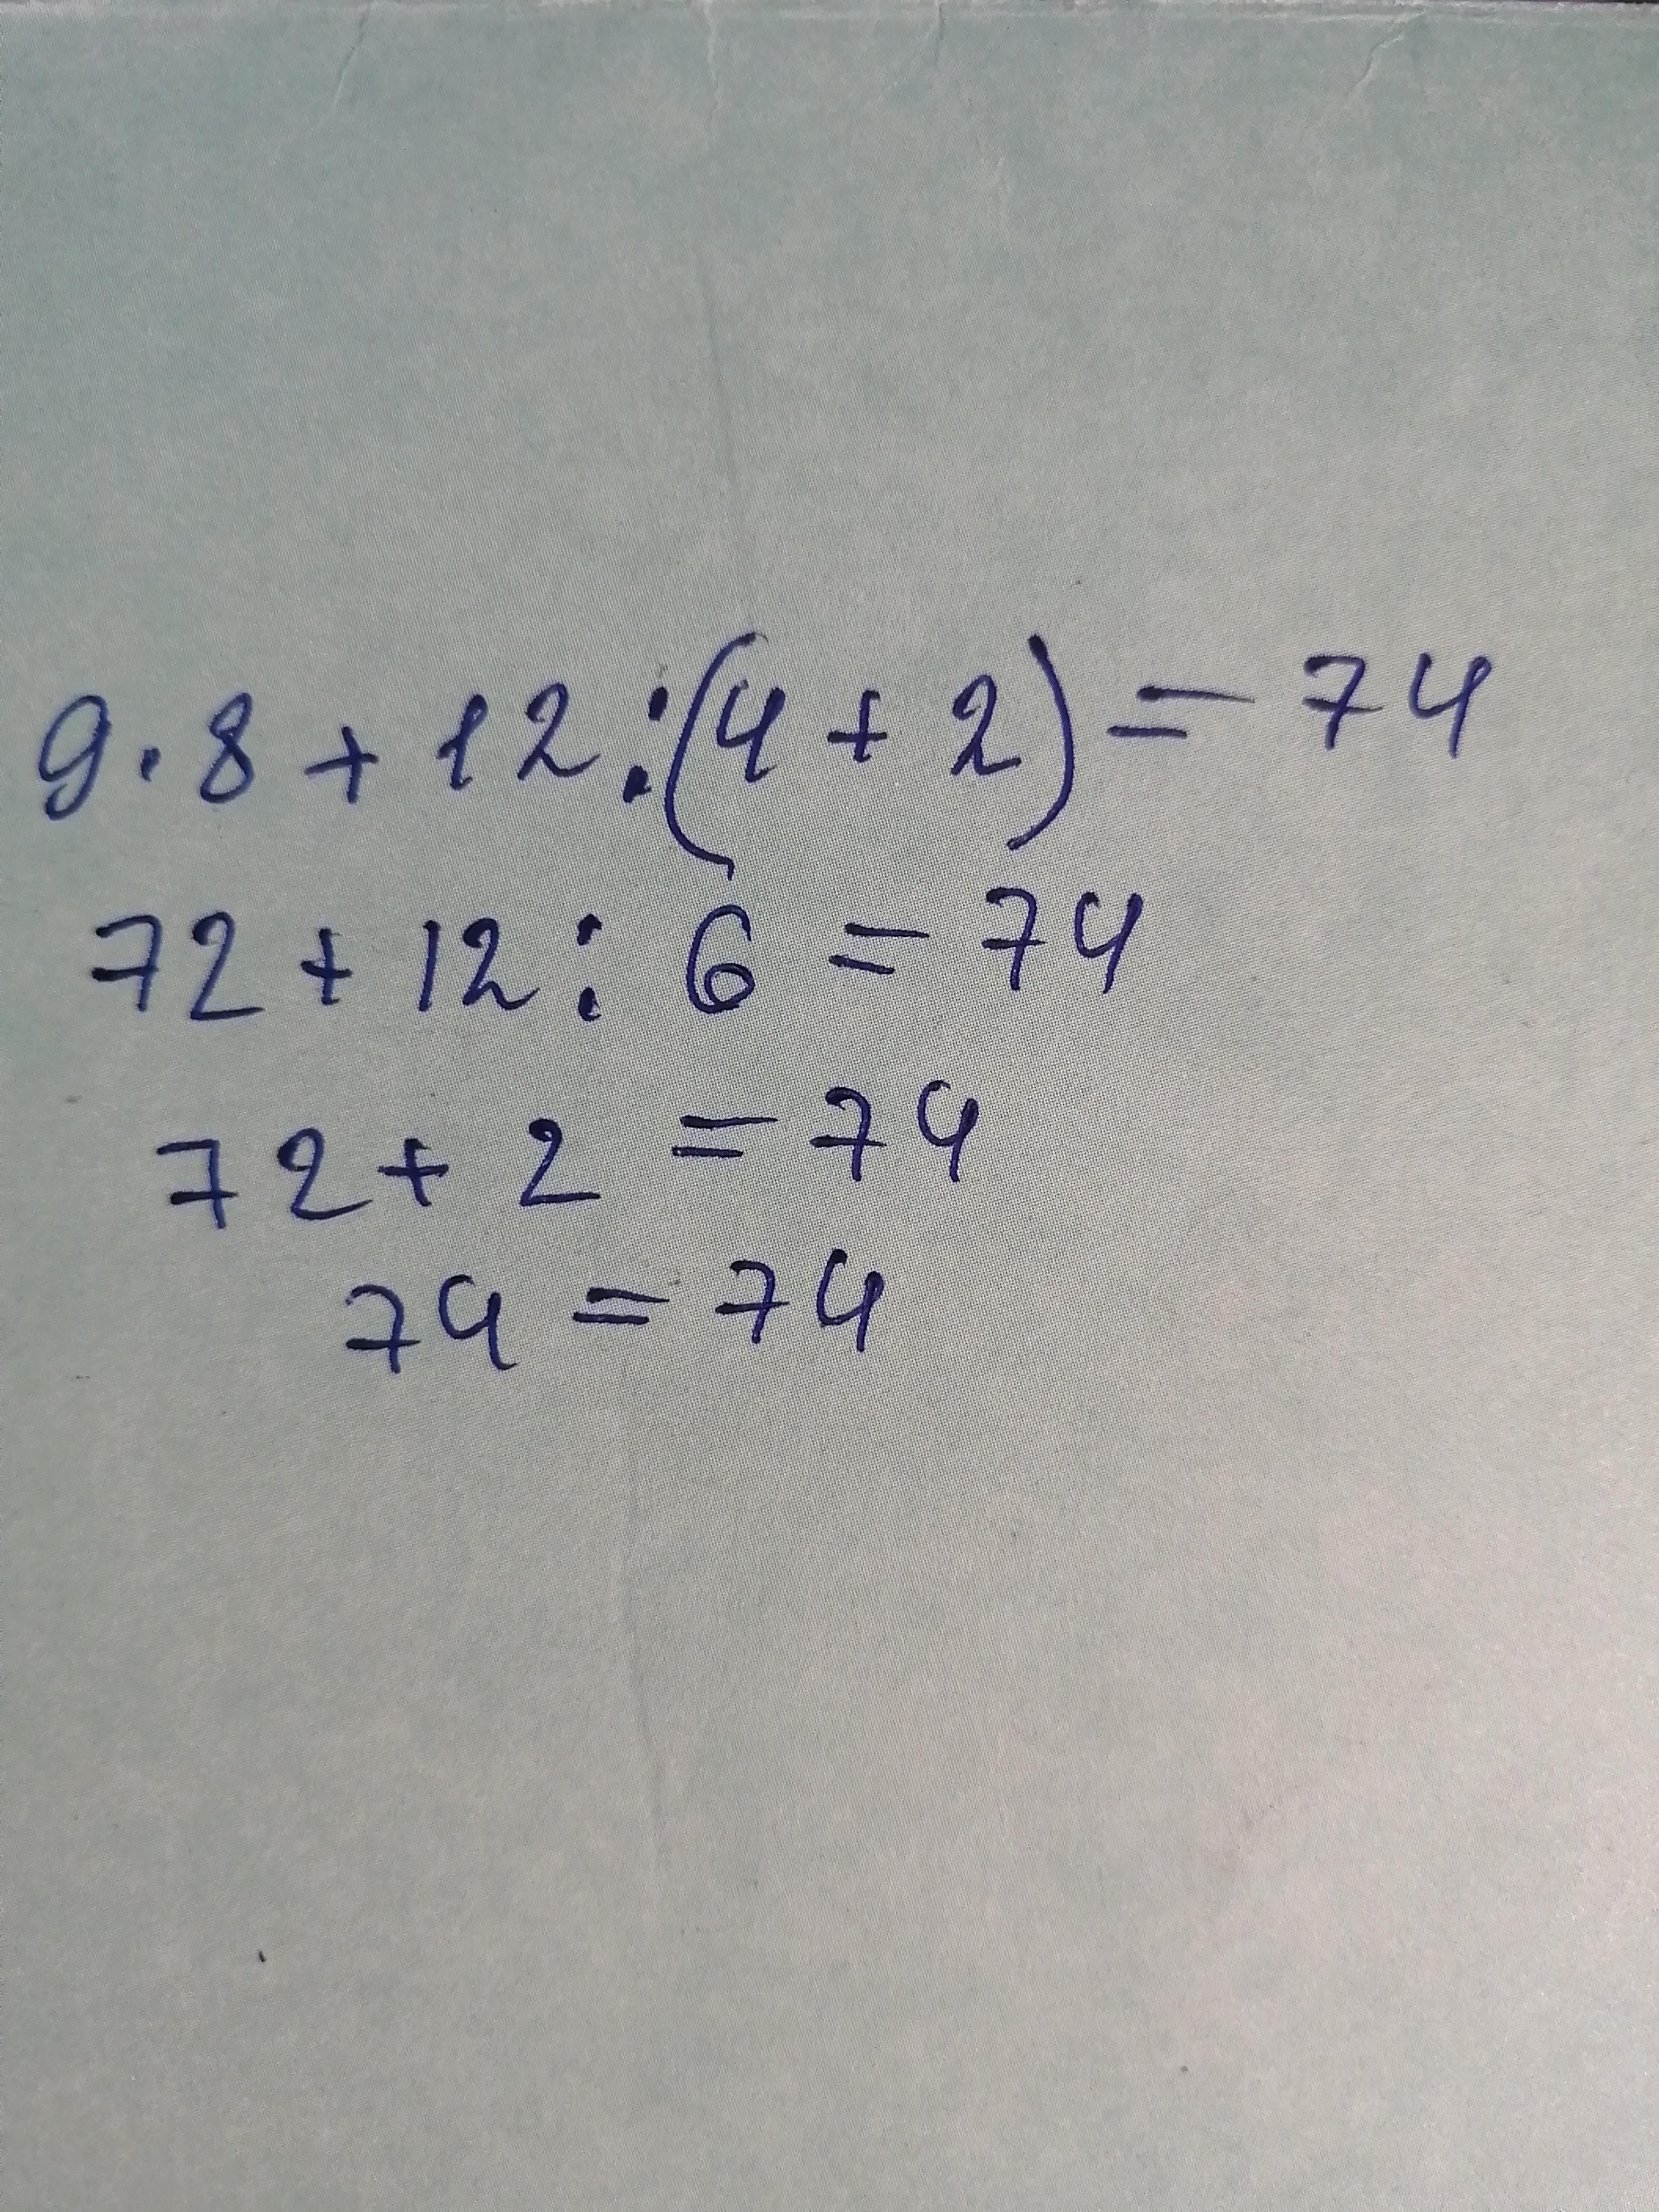 9 · 8 + 12 : (4 + 2) = 74
72 + 12 : 6 = 74
72 + 2 = 74
74 = 74